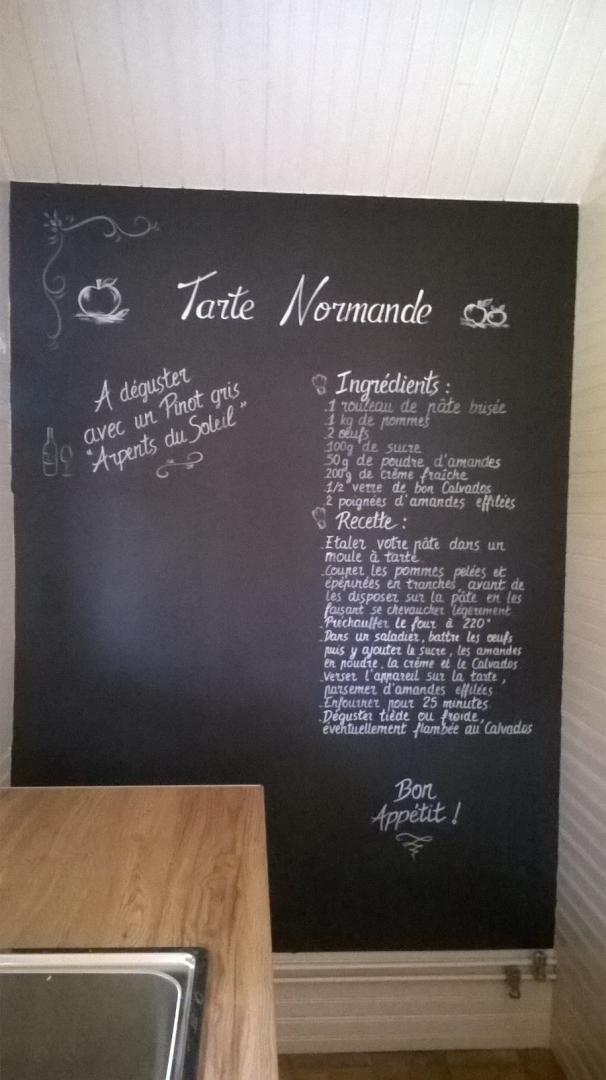 Tarte Normande
A déguster
avec un Pinot gris
"Arpents du Soleil"
Ingrédients :
1 rouleau de pâte brisée
1 kg de pommes
2 œufs
100g de sucre
50g de poudre d'amandes
200g de crème fraîche
1/2 verre de bon Calvados
2 poignées d'amandes effilées
Recette :
Etaler votre pâte dans un
moule à tarte
Couper les pommes pelées et
épépinées en tranches, avant de
les disposer sur la pâte en les
faisant se chevaucher légèrement
Préchauffer le four à 220°
Dans un saladier, battre les œufs
puis y ajouter le sucre, les amandes
en poudre, la crème et le Calvados
Verser l'appareil sur la tarte,
parsemer d'amandes effilées
Enfourner pour 25 minutes
Déguster tiède ou froide,
éventuellement flambée au Calvados
Bon
Appétit !